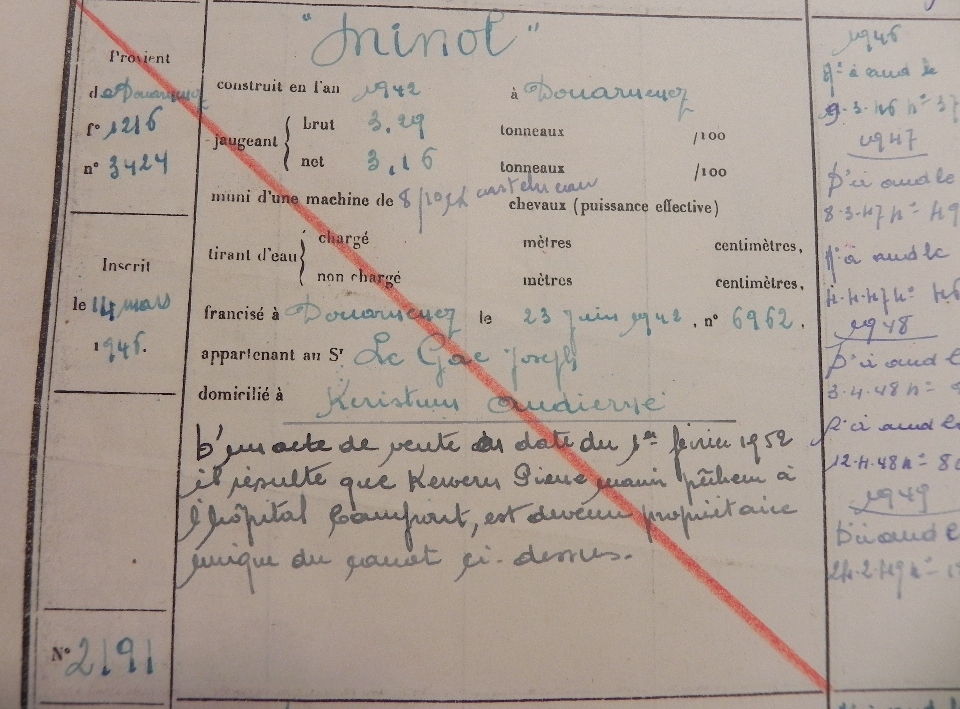 "Minot"
Provient
de Douarnenez
f° 1216
n° 3424
Inscrit
le 14 mars
1946.
N° 2191
construit en l'an 1942 à Douarnenez
jaugeant { brut 3,29 tonneaux /100
net 3,16 tonneaux /100
muni d'une machine de 8/10 cx chevaux (puissance effective)
tirant d'eau { chargé mètres centimètres,
non chargé mètres centimètres,
francisé à Douarnenez le 23 juin 1942, n° 6962.
appartenant au Sr Le Gac Joseph
domicilié à Keristum Audierne
D'un acte de vente en date du 1er février 1952
il résulte que Pierre marin pêcheur à
l'hôpital Camfront, est devenu propriétaire
unique du canot ci-dessus.
1946
P.é à aud le
9-3-46 n° 37
1947
P.é à aud le
8-3-47 n°
P.é à aud le
4-4-47 n° 46
1948
P.é à aud le
3-4-48 n°
P.é à aud le
12-4-48 n° 80
1949
P.é à aud le
24-2-49 n°